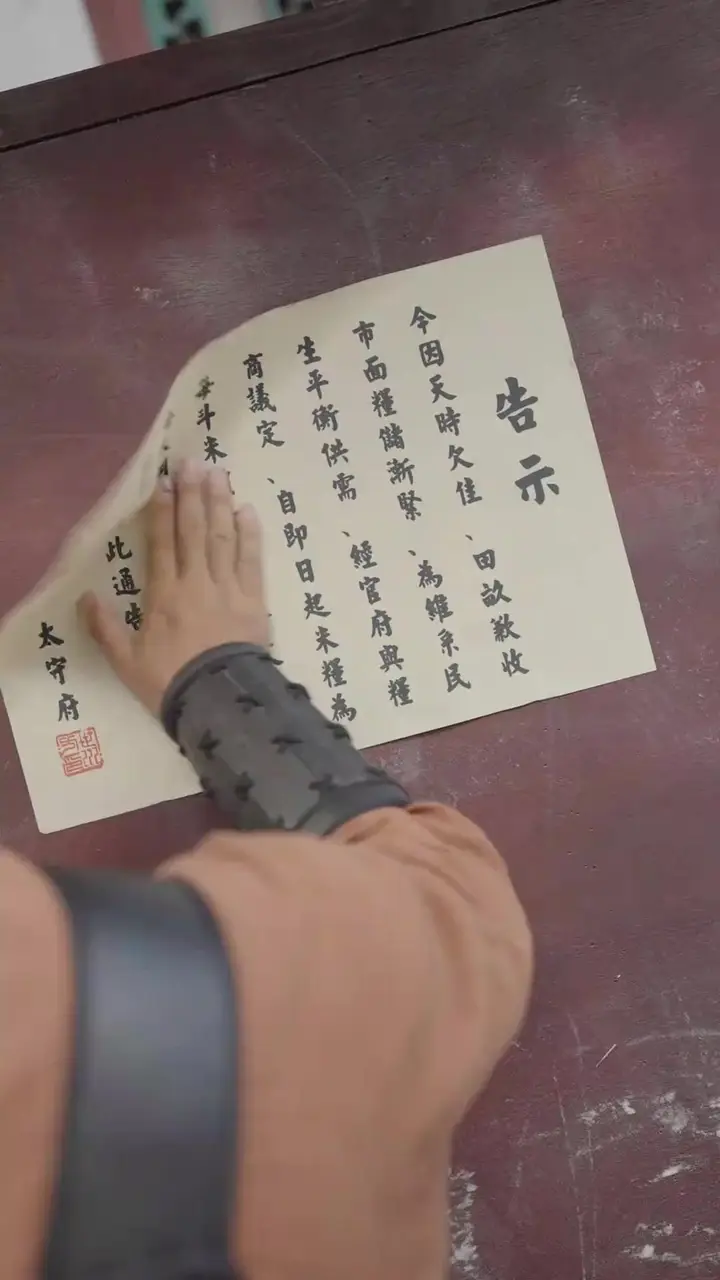 告示
今因天時欠佳、田畝歉收
市面糧儲漸緊、為維系民
生平衡供需、經官府與糧
商議定、自即日起米糧為
每斗米
此通告
太守府